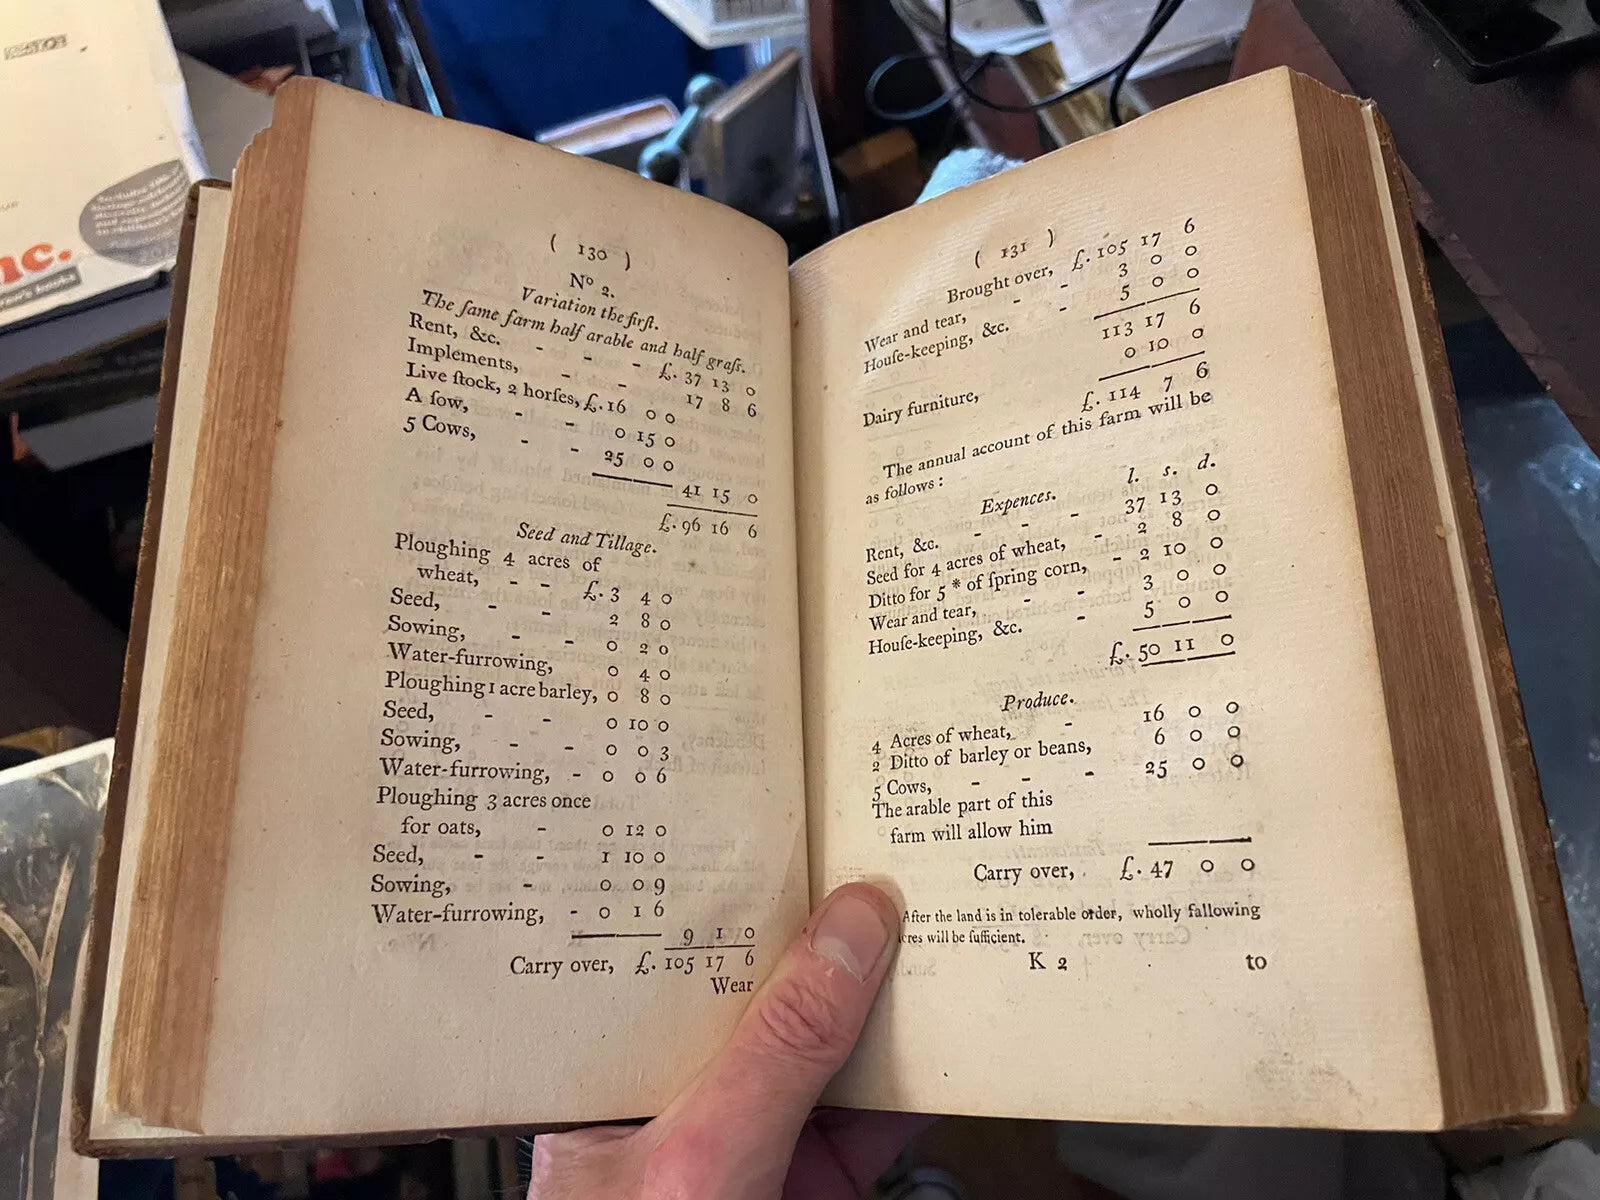 nc.
( 130 )
Nº 2.
Variation the firſt.
The ſame farm half arable and half graſs.
Rent, &c. - - - £. 37 13 0
Implements, - - 17 8 6
Live ſtock, 2 horſes, £. 16 0 0
A ſow, - - 0 15 0
5 Cows, - - 25 0 0
41 15 0
£. 96 16 6
Seed and Tillage.
Ploughing 4 acres of
wheat, - - £. 3 4 0
Seed, - - 2 8 0
Sowing, - - 0 2 0
Water-furrowing, 0 4 0
Ploughing 1 acre barley, 0 8 0
Seed, - - 0 10 0
Sowing, - - 0 0 3
Water-furrowing, - 0 0 6
Ploughing 3 acres once
for oats, - 0 12 0
Seed, - - 1 10 0
Sowing, - 0 0 9
Water-furrowing, - 0 1 6
9 1 0
Carry over, £. 105 17 6
Wear
( 131 )
Brought over, £. 105 17 6
Wear and tear, - - 3 0 0
Houſe-keeping, &c. - 5 0 0
113 17 6
Dairy furniture, 0 10 0
£. 114 7 6
The annual account of this farm will be
as follows:
Expences. l. s. d.
Rent, &c. - - - 37 13 0
Seed for 4 acres of wheat, - 2 8 0
Ditto for 5 * of ſpring corn, - 2 10 0
Wear and tear, - - 3 0 0
Houſe-keeping, &c. - 5 0 0
£. 50 11 0
Produce.
4 Acres of wheat, - 16 0 0
2 Ditto of barley or beans, 6 0 0
5 Cows, - - - 25 0 0
The arable part of this
farm will allow him
Carry over, £. 47 0 0
After the land is in tolerable order, wholly fallowing
will be ſufficient.
K 2 to